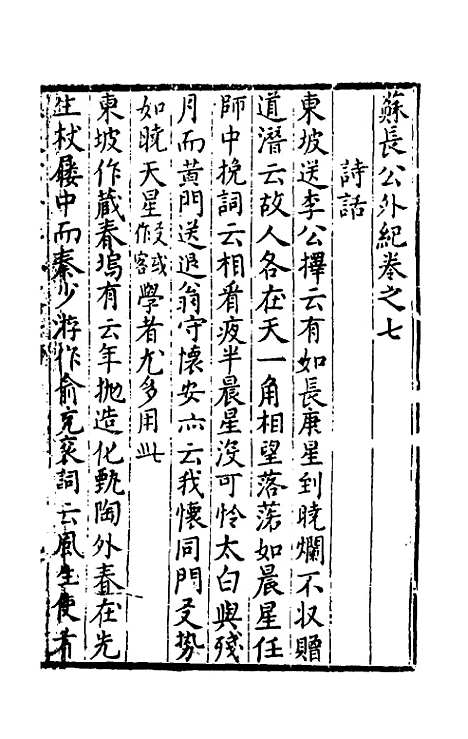 蘇長公外紀卷之七
詩話
東坡送李公擇云有如長庚星到曉爛不收贈
道潛云故人各在天一角相望落落如晨星任
師中挽詞云相看疲半晨星沒可憐太白與殘
月而黃門送退翁守懷安亦云我懷同門友勢
如曉天星友或作客學者尤多用此
東坡作藏春塢有云年拋造化甄陶外春在先
生杖屨中而秦少游作俞充哀詞云風生使者